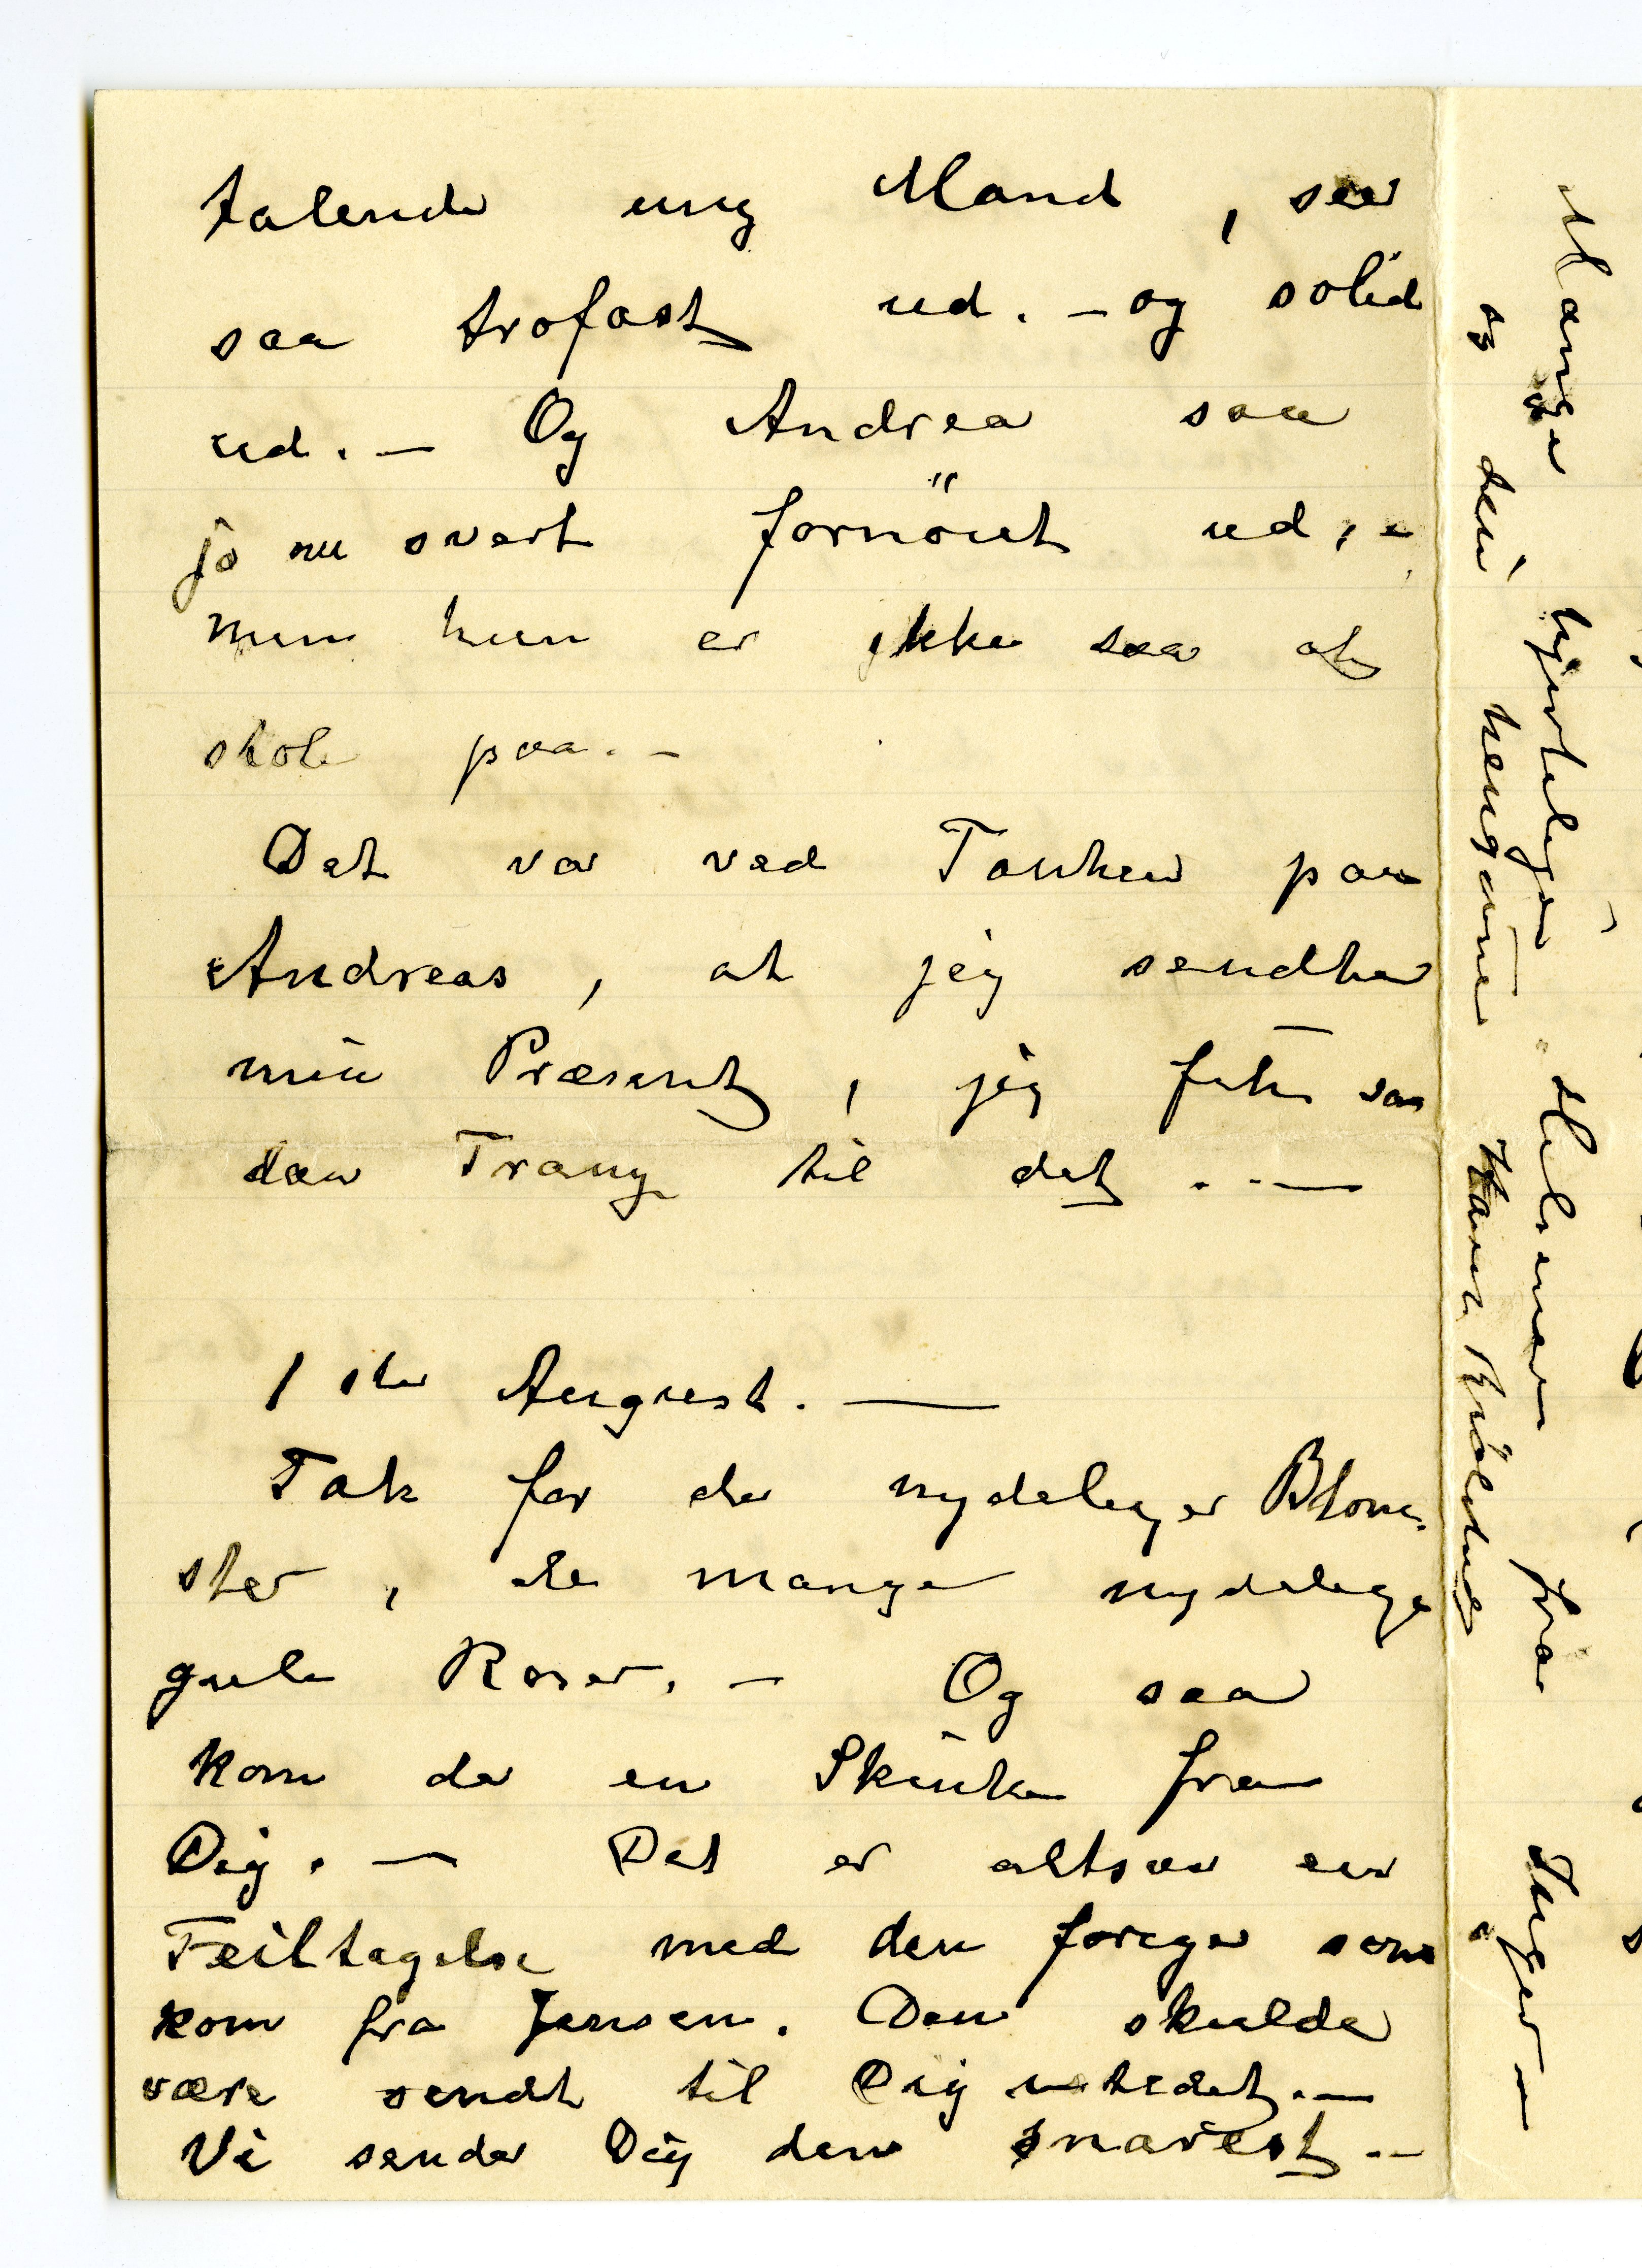 talende ung Mand, seer
saa trofast ud. – og solid
ud. – Og Andrea saa
jo nu svert fornöiet ud, –
men hun er ikke saa at
stole paa. –
Det var ved Tanken paa
Andreas, at jeg sendte
min Præsent, jeg fik saa
dan Trang til det . . —
1ste August. —
Tak for de nydelige Blom-
ster, de mange nydelige
gule Roser. – Og saa
kom der en Skinke fra
Dig. — Det er altsaa en
Feiltagelse med den forrige som
kom fra Jensen. Den skulde
være sendt til Dig istedet. —
Vi sender Dig den snarest. —
Mange hjerteliger Hilsener fra Inger
og din hengivne